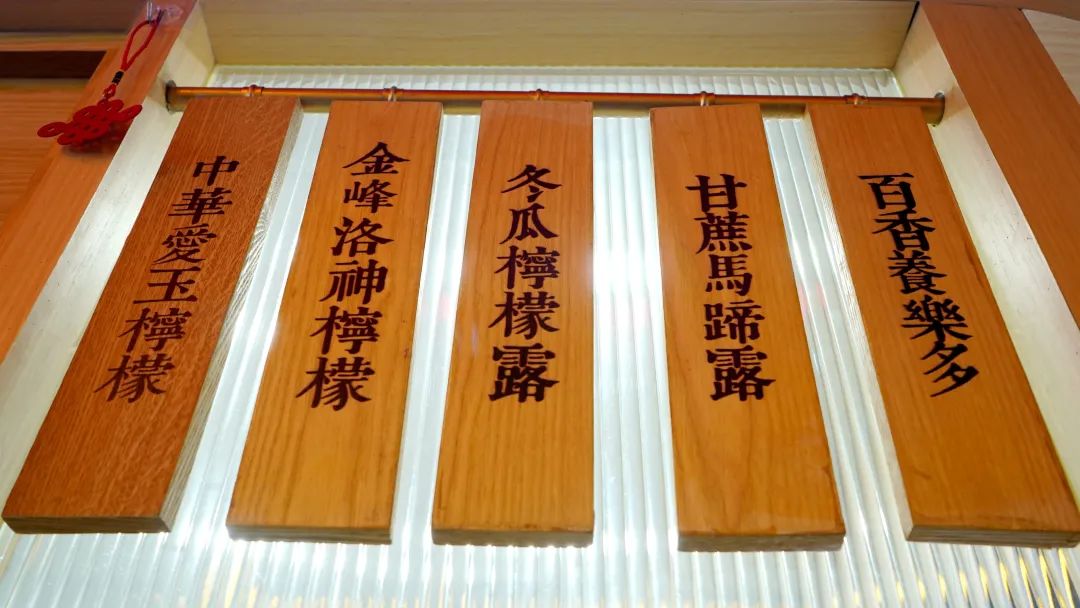 中華愛玉檸檬
金峰洛神檸檬
冬瓜檸檬露
甘蔗馬蹄露
百香養樂多